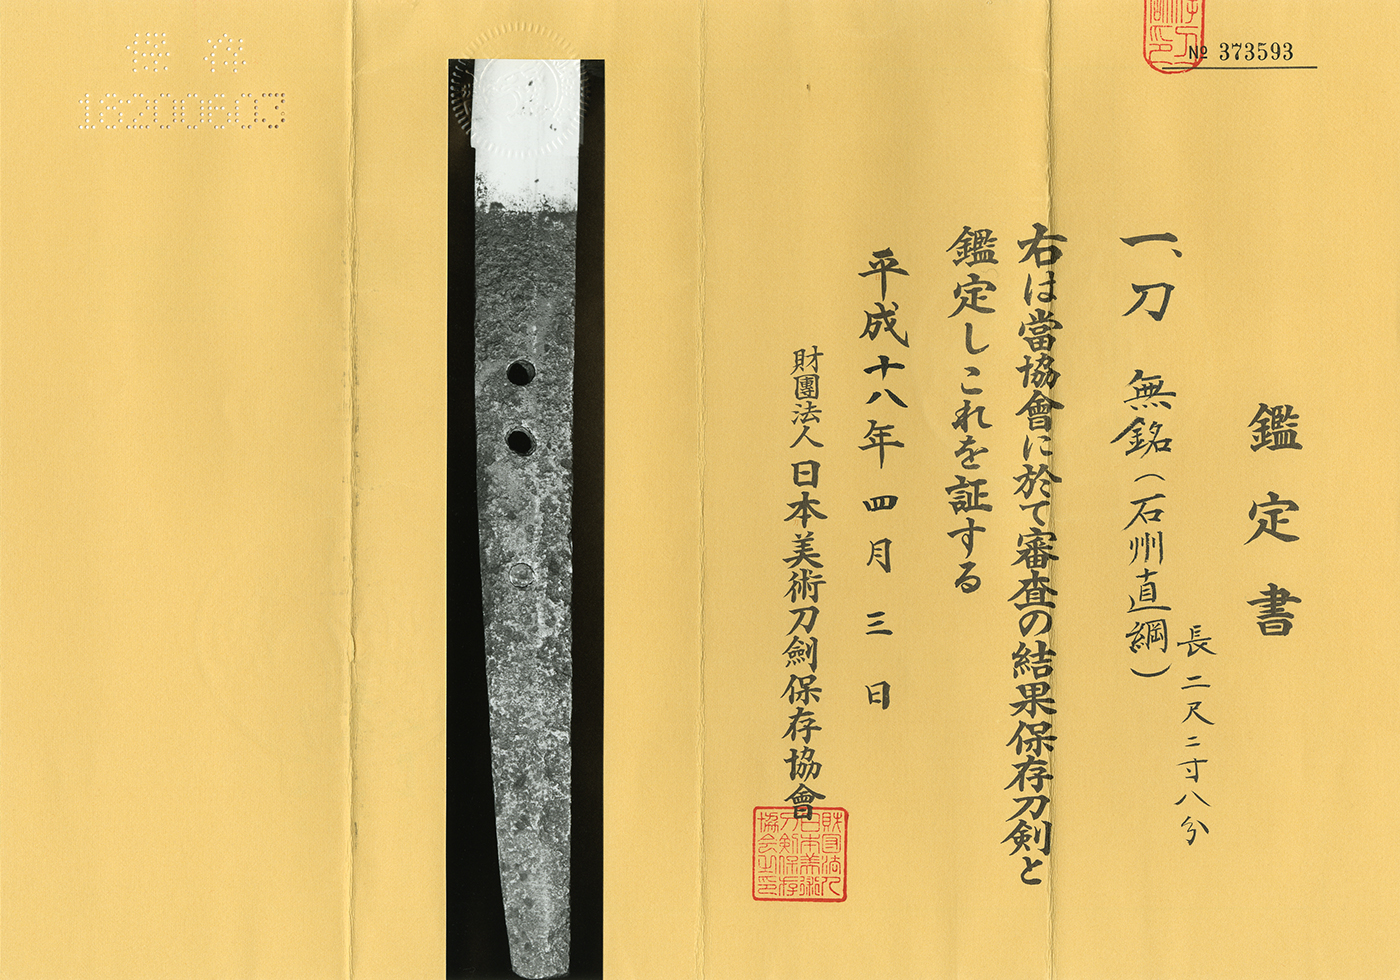 № 373593
鑑定書
一、刀 無銘(石州直綱)
長 二尺二寸八分
右は當協會に於て審査の結果保存刀剣と
鑑定しこれを証する
平成十八年四月三日
財團法人 日本美術刀劍保存協會
財団法人
日本美術
刀剣保存
協会之印
保存
18200603